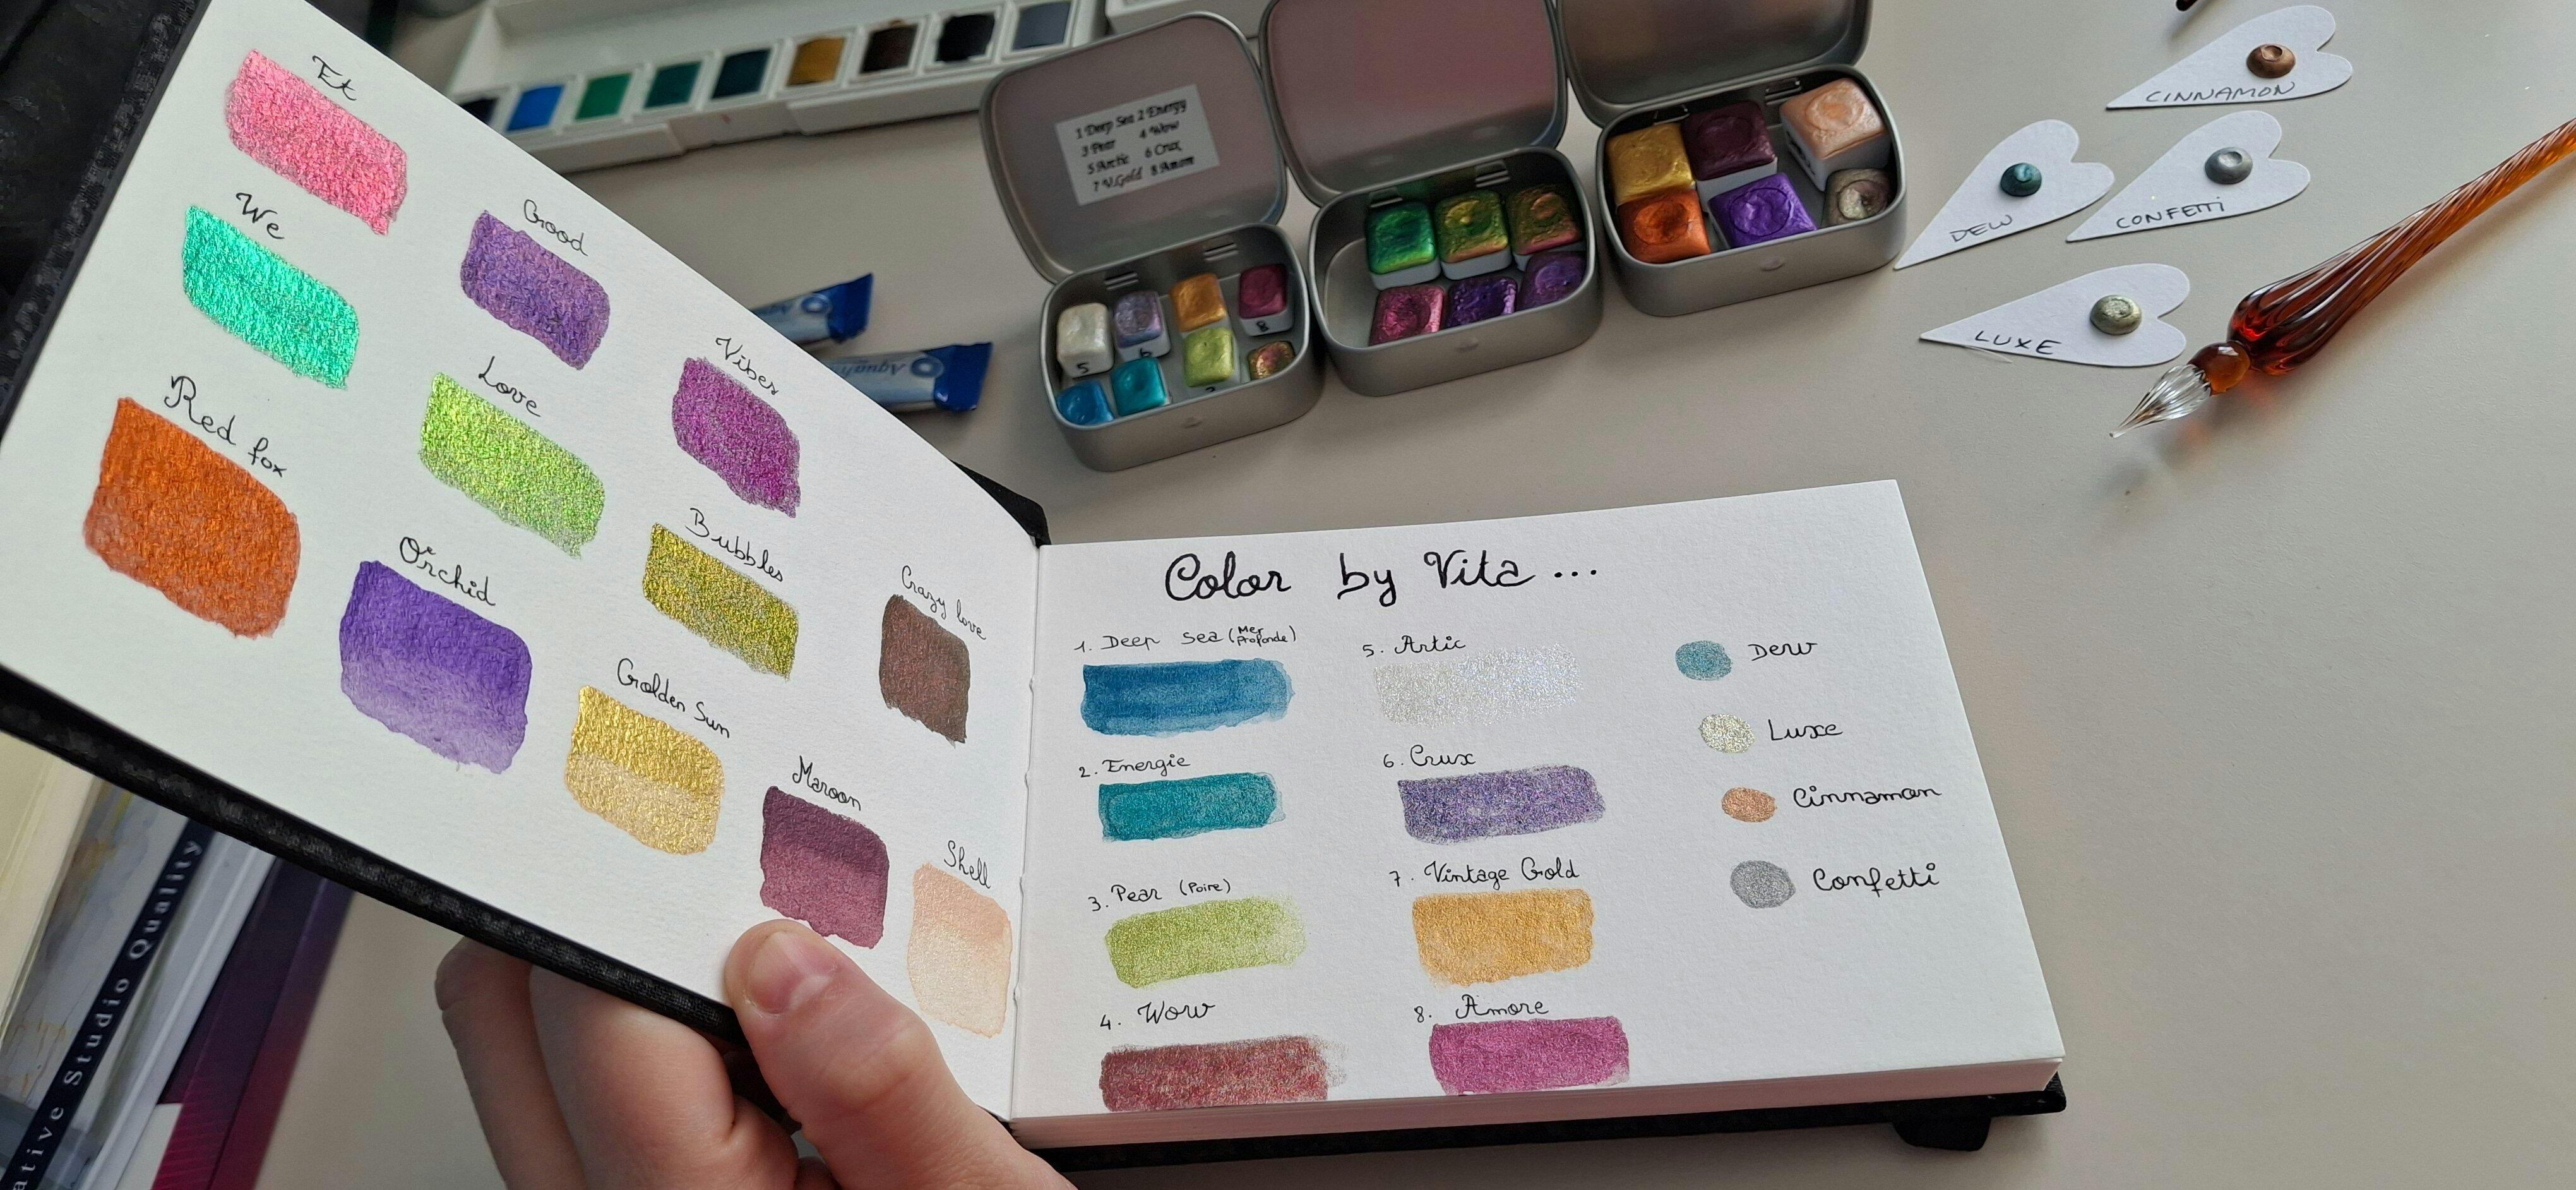 Et
We
Good
Red fox
Love
Vibes
Orchid
Bubbles
Crazy love
Golden Sun
Maroon
Shell
Color by Vita ...
1. Deep Sea (Mer Profonde)
2. Energie
3. Pear (Poire)
4. Wow
5. Artic
6. Crux
7. Vintage Gold
8. Amore
Dew
Luxe
Cinnamon
Confetti
1 Deep Sea 2 Energy
3 Pear 4 Wow
5 Arctic 6 Crux
7 V.Gold 8 Amore
5
6
8
CINNAMON
DEW
CONFETTI
LUXE
ative Studio Quality